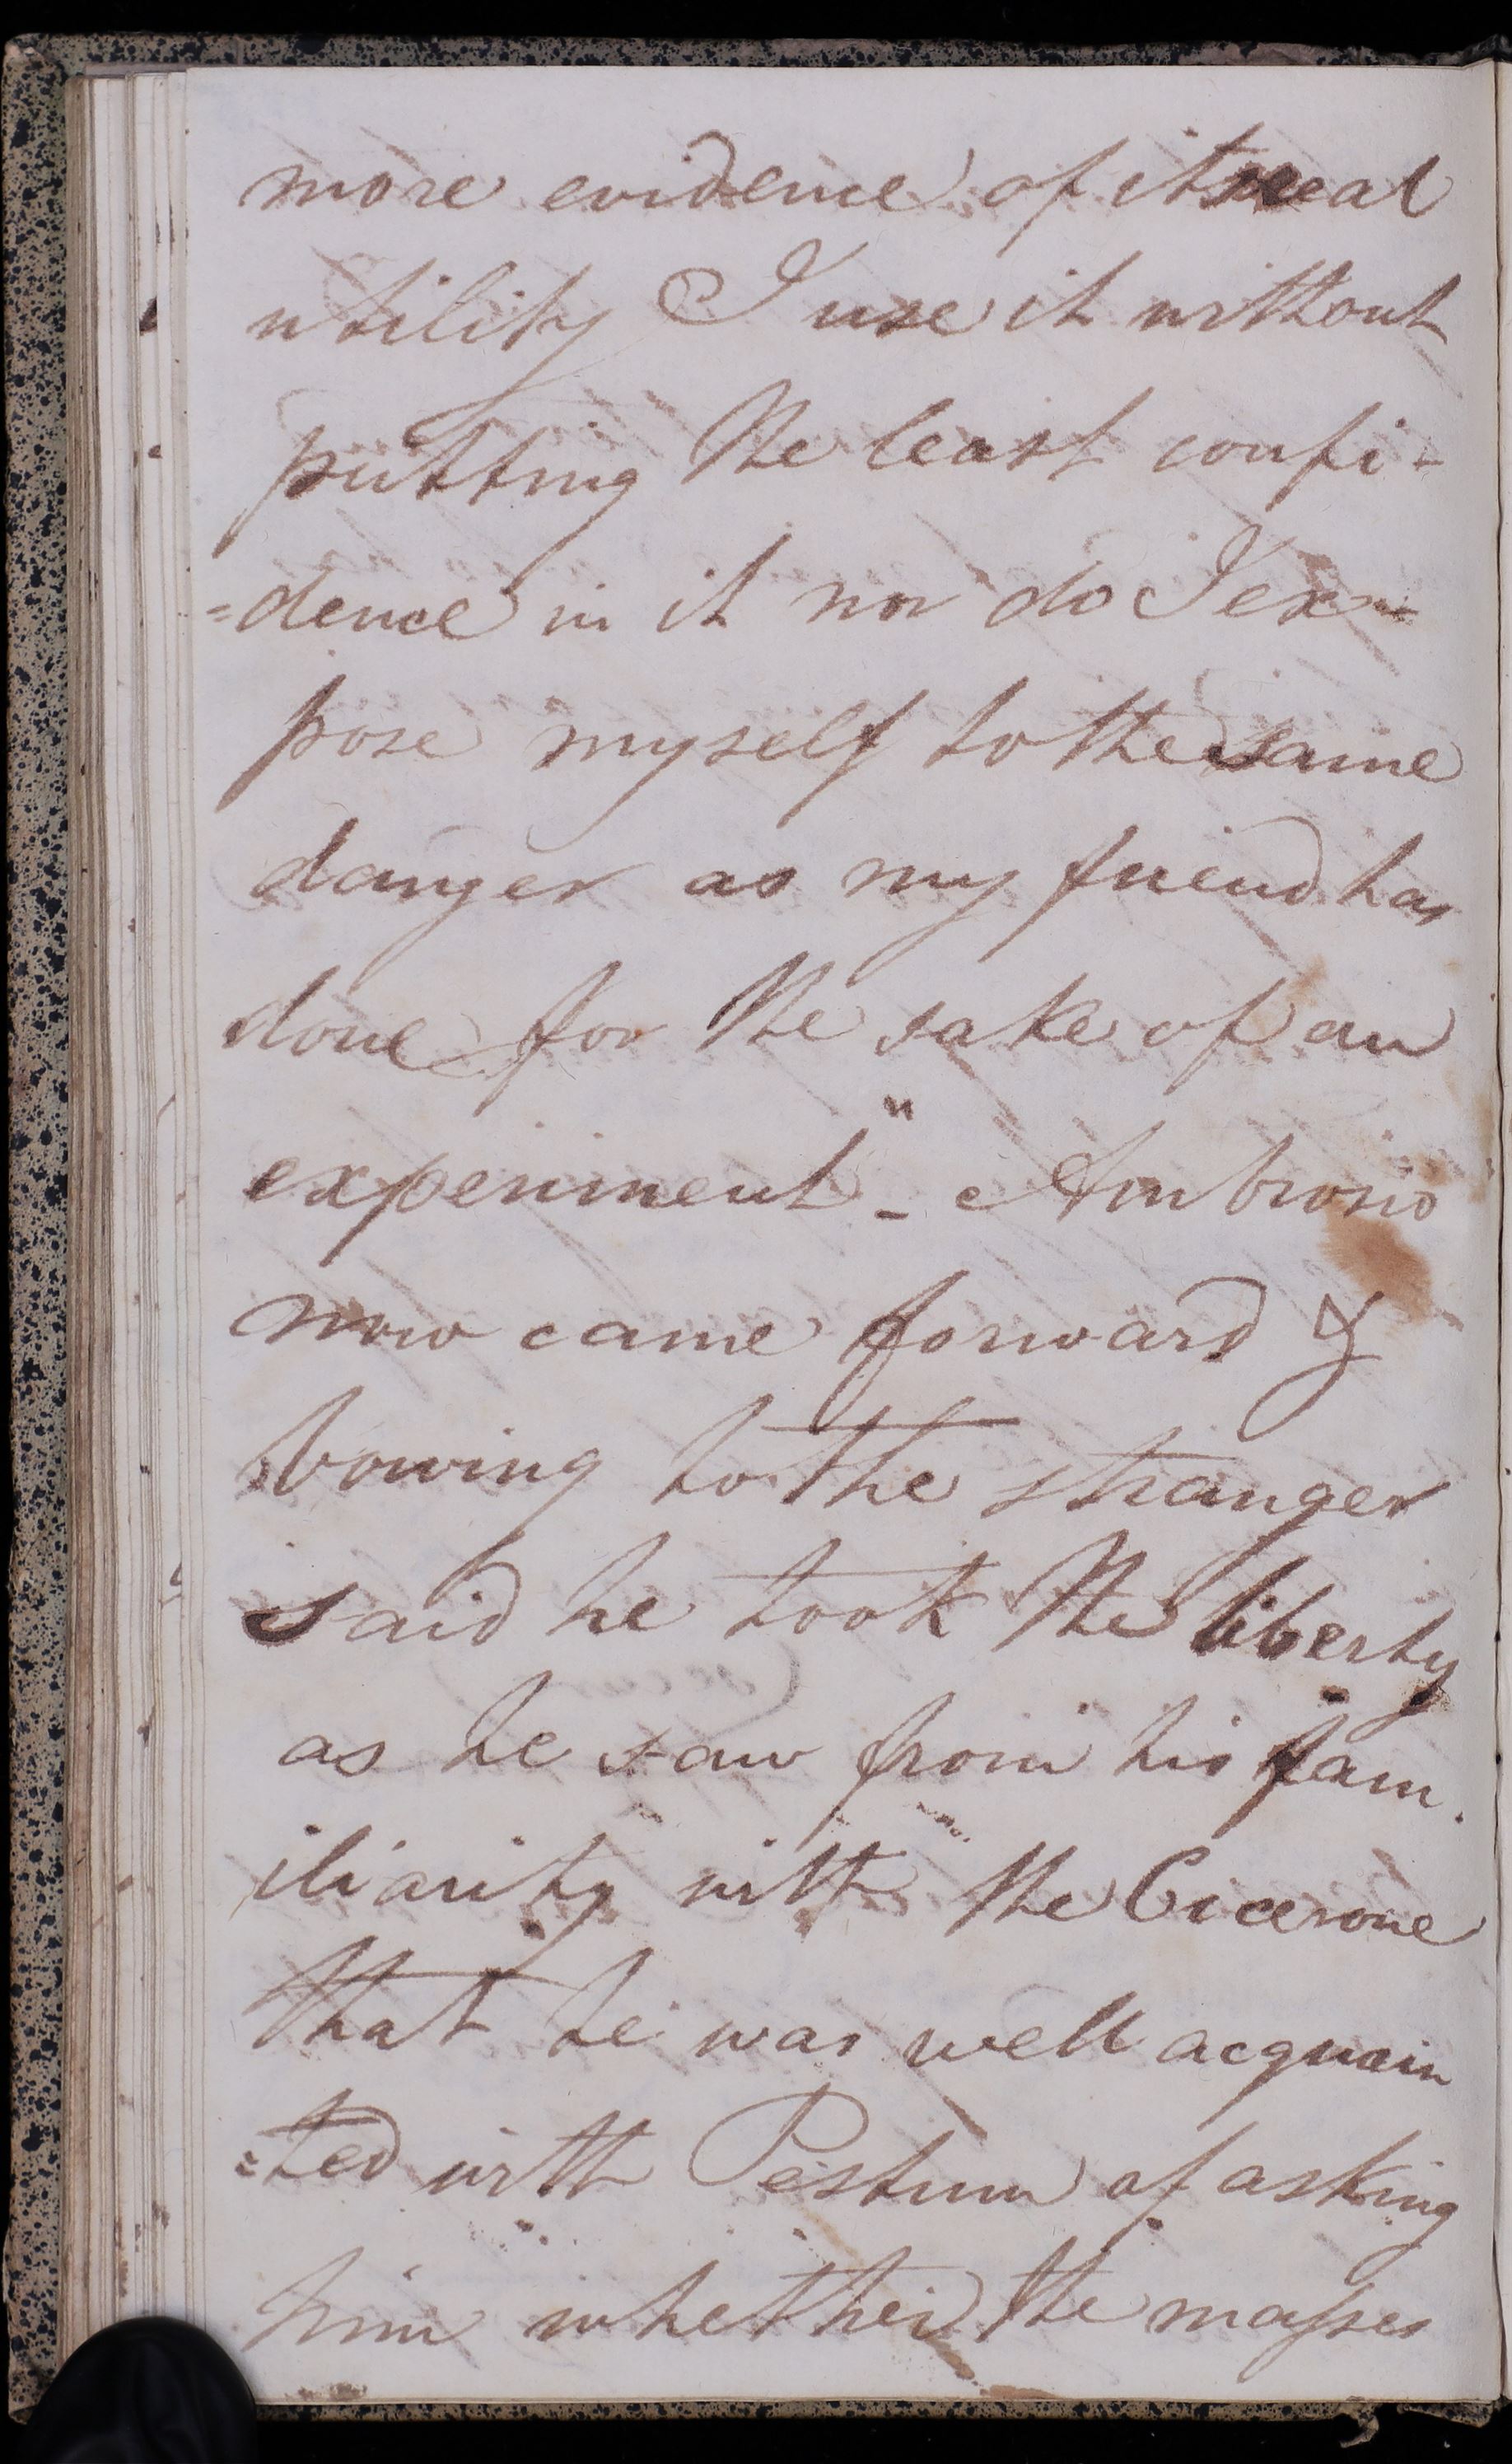 more evidence of its real
utility I use it without
putting the least confi-
=dence in it nor do I ex-
pose myself to the same
danger as my friend has
done for the sake of an
experiment" - Ambrosio
now came forward &
bowing to the stranger
said he took the liberty
as he saw from his fam
iliarity with the Cicerone
that he was well acquain
=ted with Pestum of asking
him whether the masses